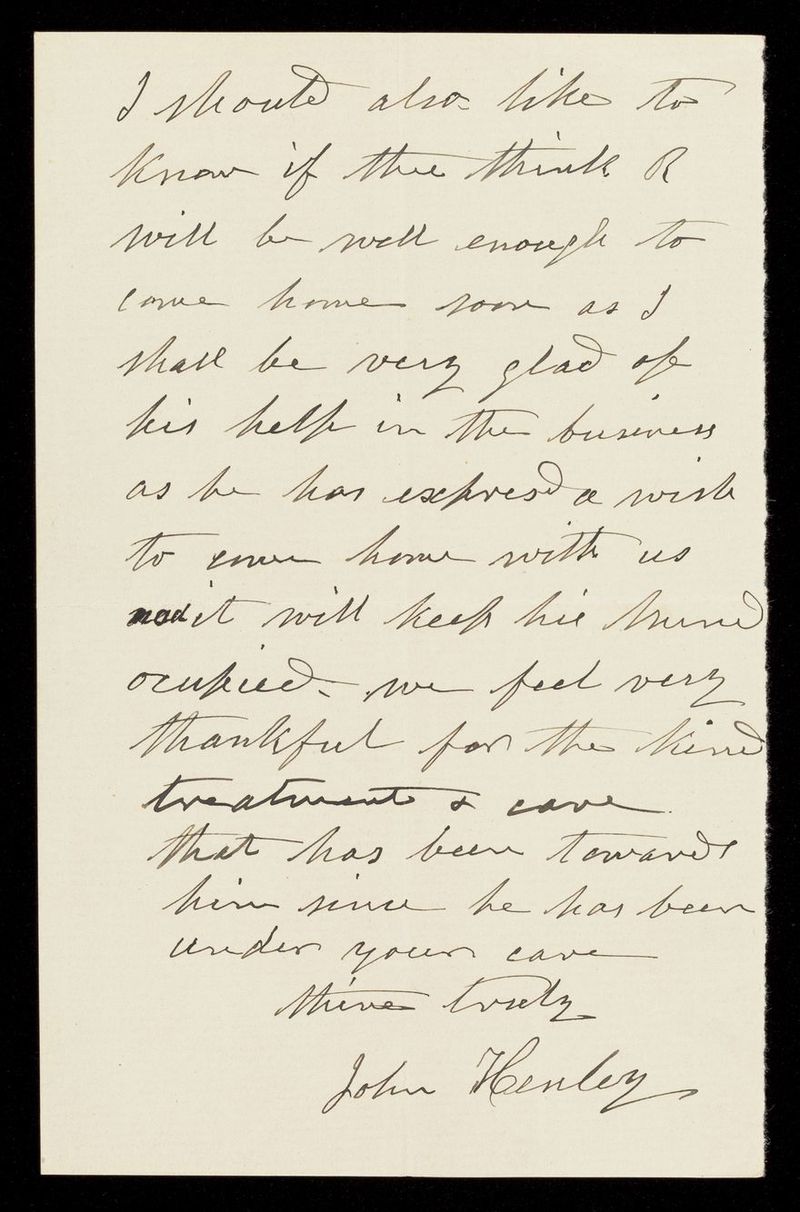 I should also like to
know if thee think R
will be well enough to
come home soon as I
shall be very glad of
his help in the business
as he has expresd a wish
to come home with us
it will keep his mind
ocupied - we feel very
thankful for the kind
treatment & care
that has been towards
him since he has been
under your care
thine truly
John Henley